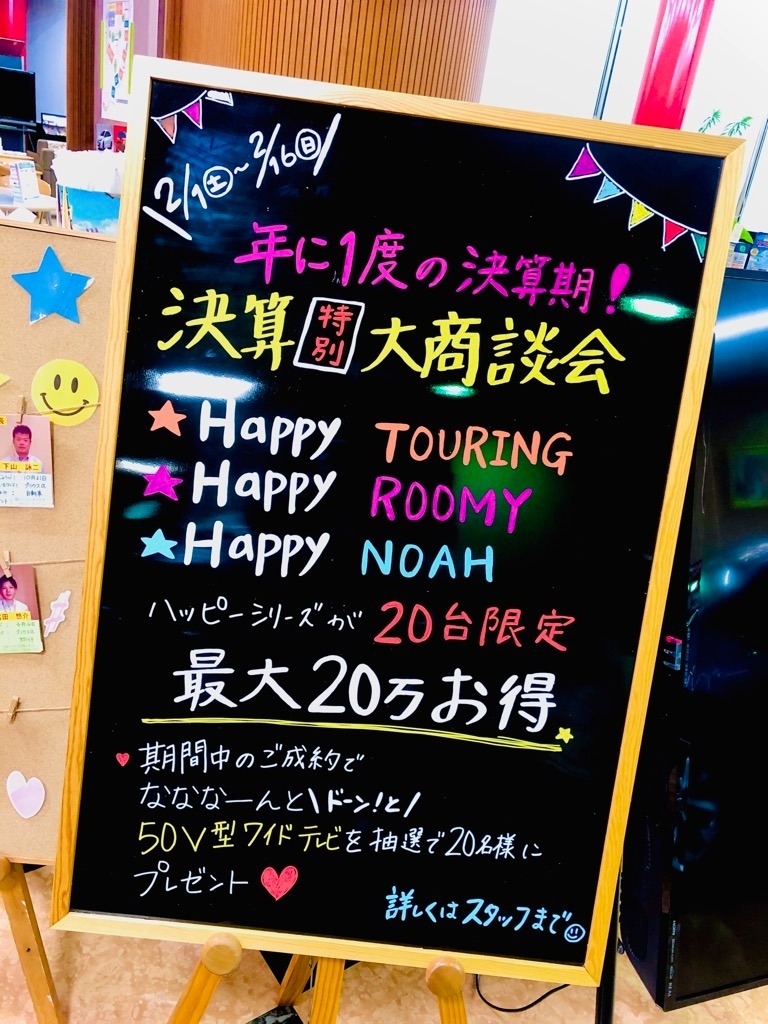 2/1㊏〜2/16㊐
年に1度の決算期!
決算特別大商談会
Happy TOURING
Happy ROOMY
Happy NOAH
ハッピーシリーズが20台限定
最大20万お得
期間中のご成約で
なななーんと\ドーン!と/
50V型ワイドテレビを抽選で20名様に
プレゼント
詳しくはスタッフまで